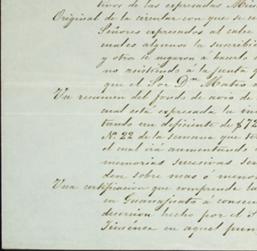 tivos de las expresadas Min
Original de la circular con que se co
Señores expresados al cabe
cuales algunos la suscribie
y otros se negaron á hacerlo
no asistiendo á la junta
que el Sor Dn Mateo
Un resumen del fondo de
está espresada la
tando un deficiente de $72
No. 22 de la semana que
el cual irá aumentando
memorias sucesivas
den sobre mas ó menos
Una certificacion que comprende la
en Guanajuato á consec
decision hecho por el S
Jiménez en aquel pun